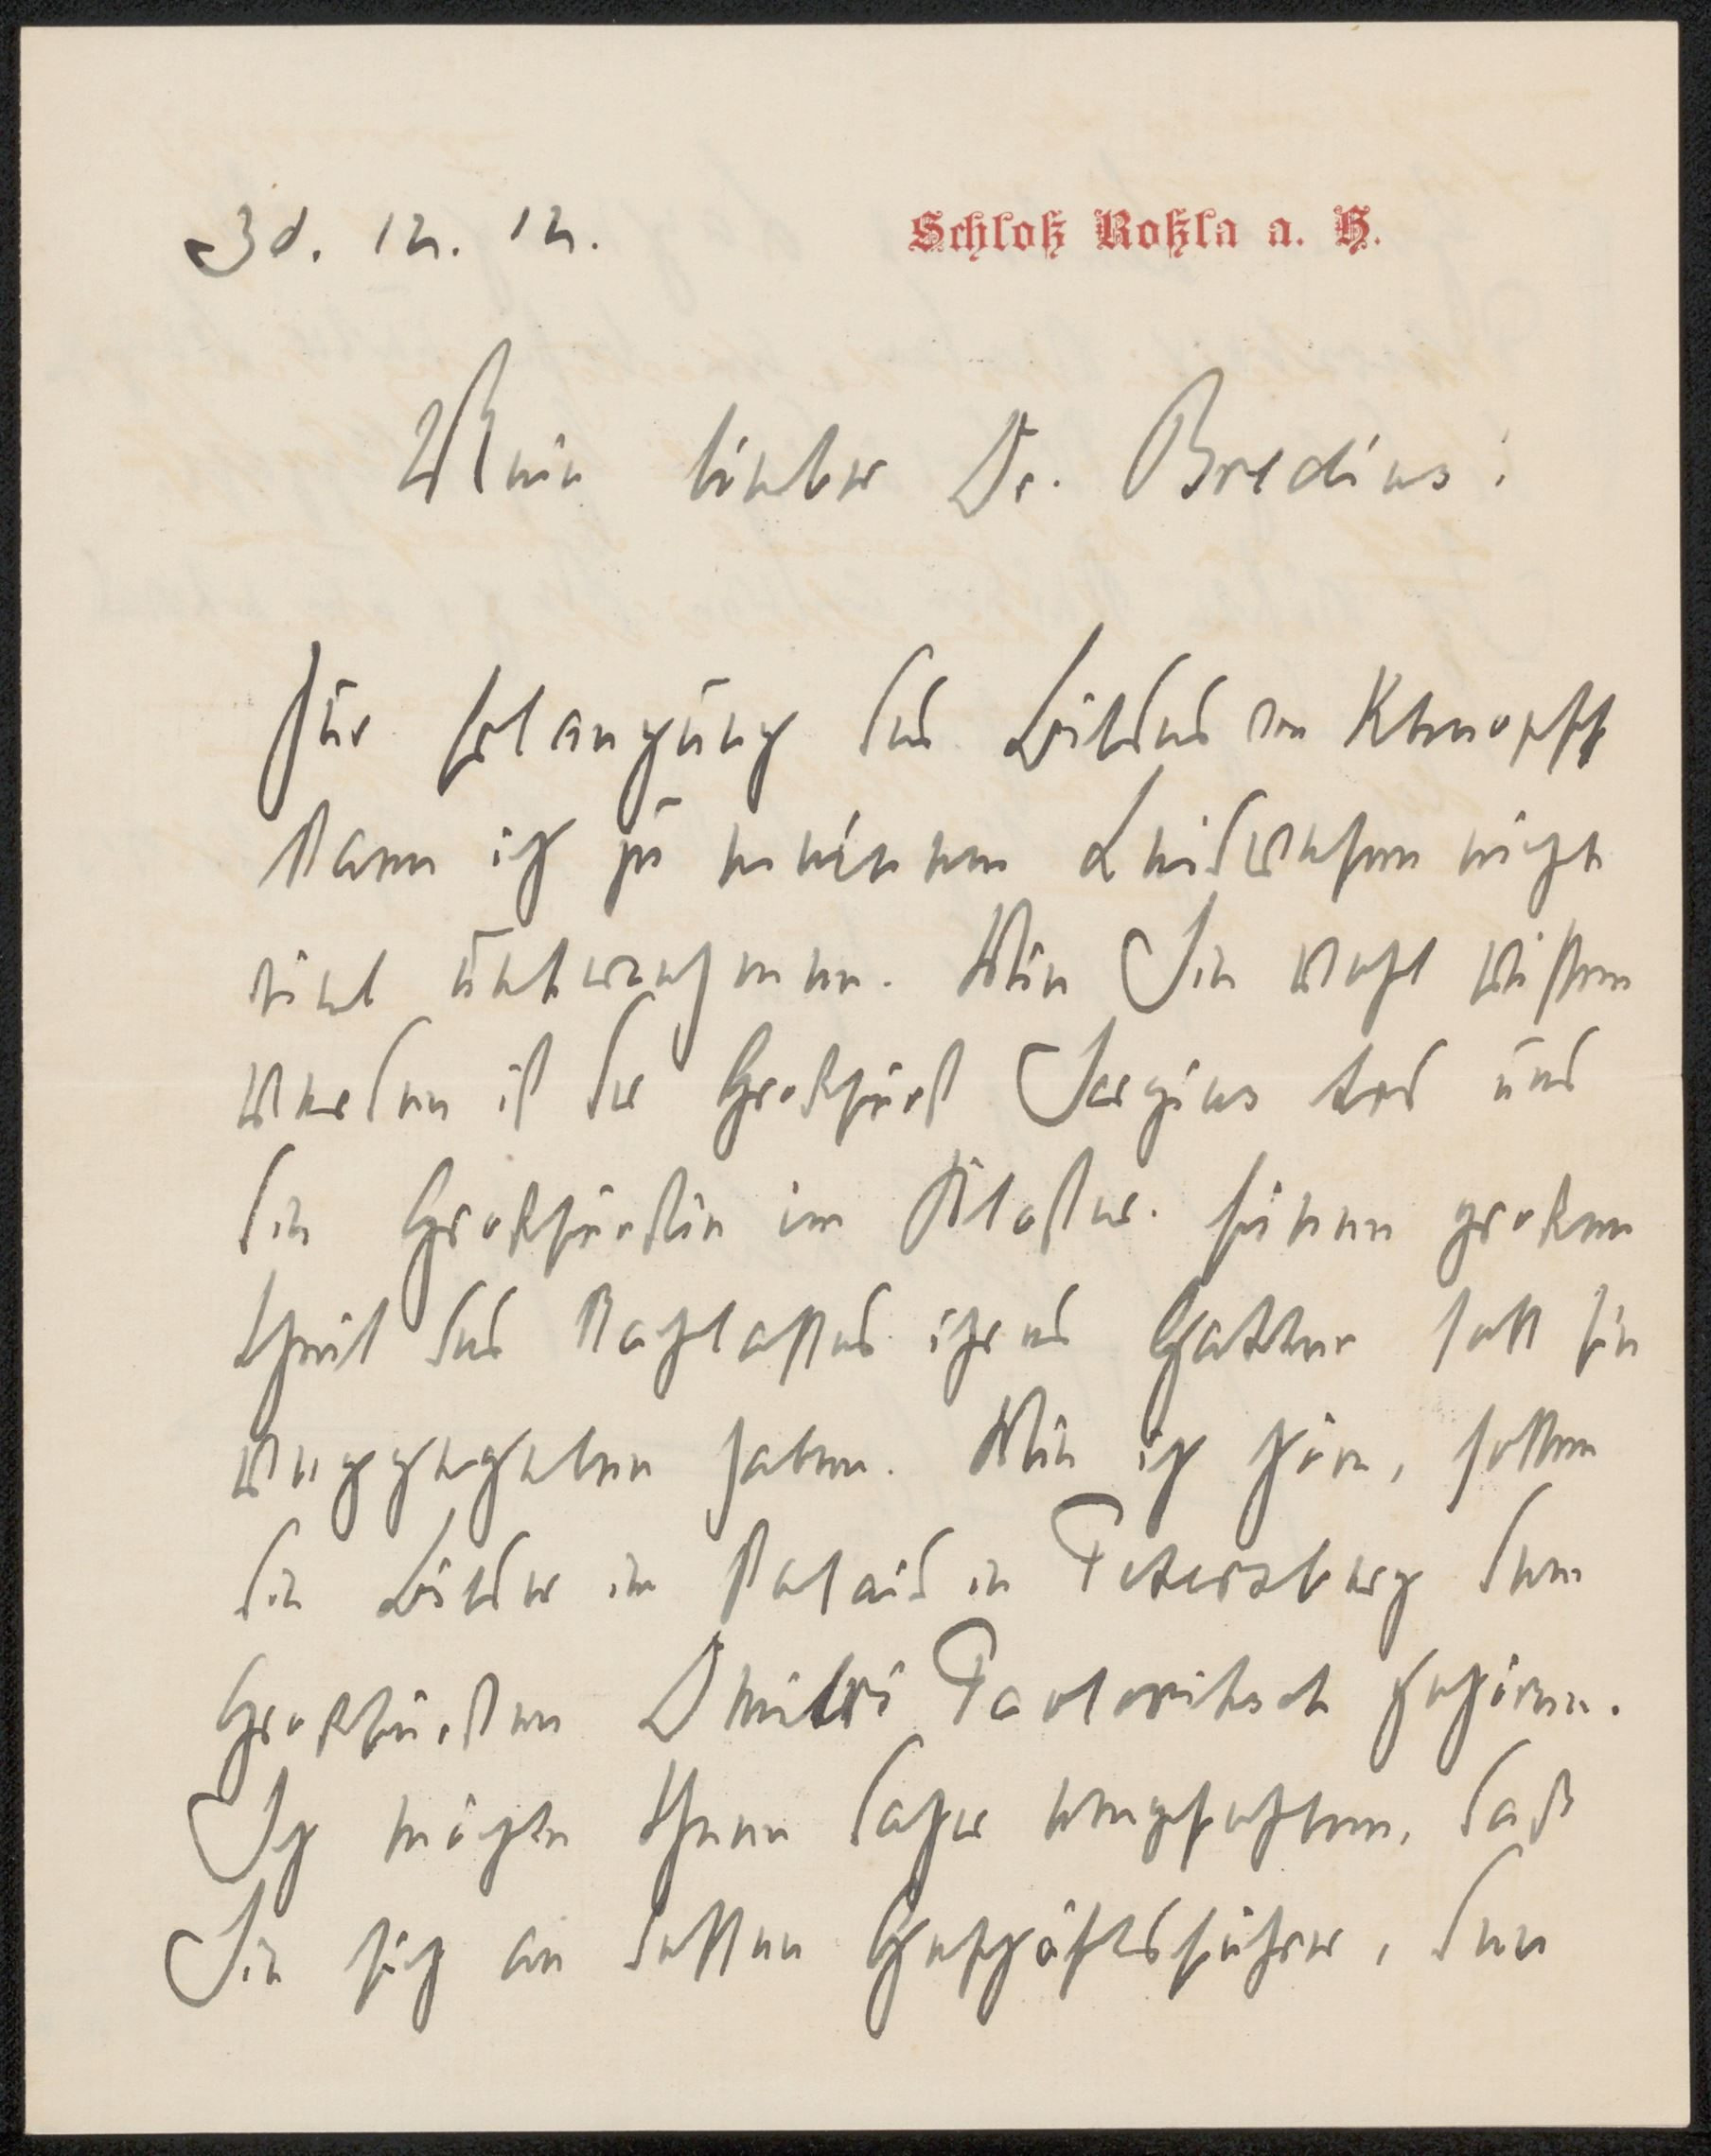 30. 12. 12.
Schloß Roßla a. H.
Mein lieber Dr. Bredius!
Für Erlangung des Bildes von Khnopff
kann ich zu meinem Leidwesen nicht
viel unternehmen. Wie Sie wohl wissen
werden ist der Großfürst Sergius tod und
die Großfürstin im Kloster. Einen großen
Theil des Nachlasses ihres Gatten soll sie
weggegeben haben. Wie ich höre, sollen
die Bilder im Palais in Petersburg dem
Großfürsten Dmitri Pavlovitsch gehören.
Ich möchte Ihnen daher empfehlen, daß
Sie sich an dessen Geschäftsführer, den